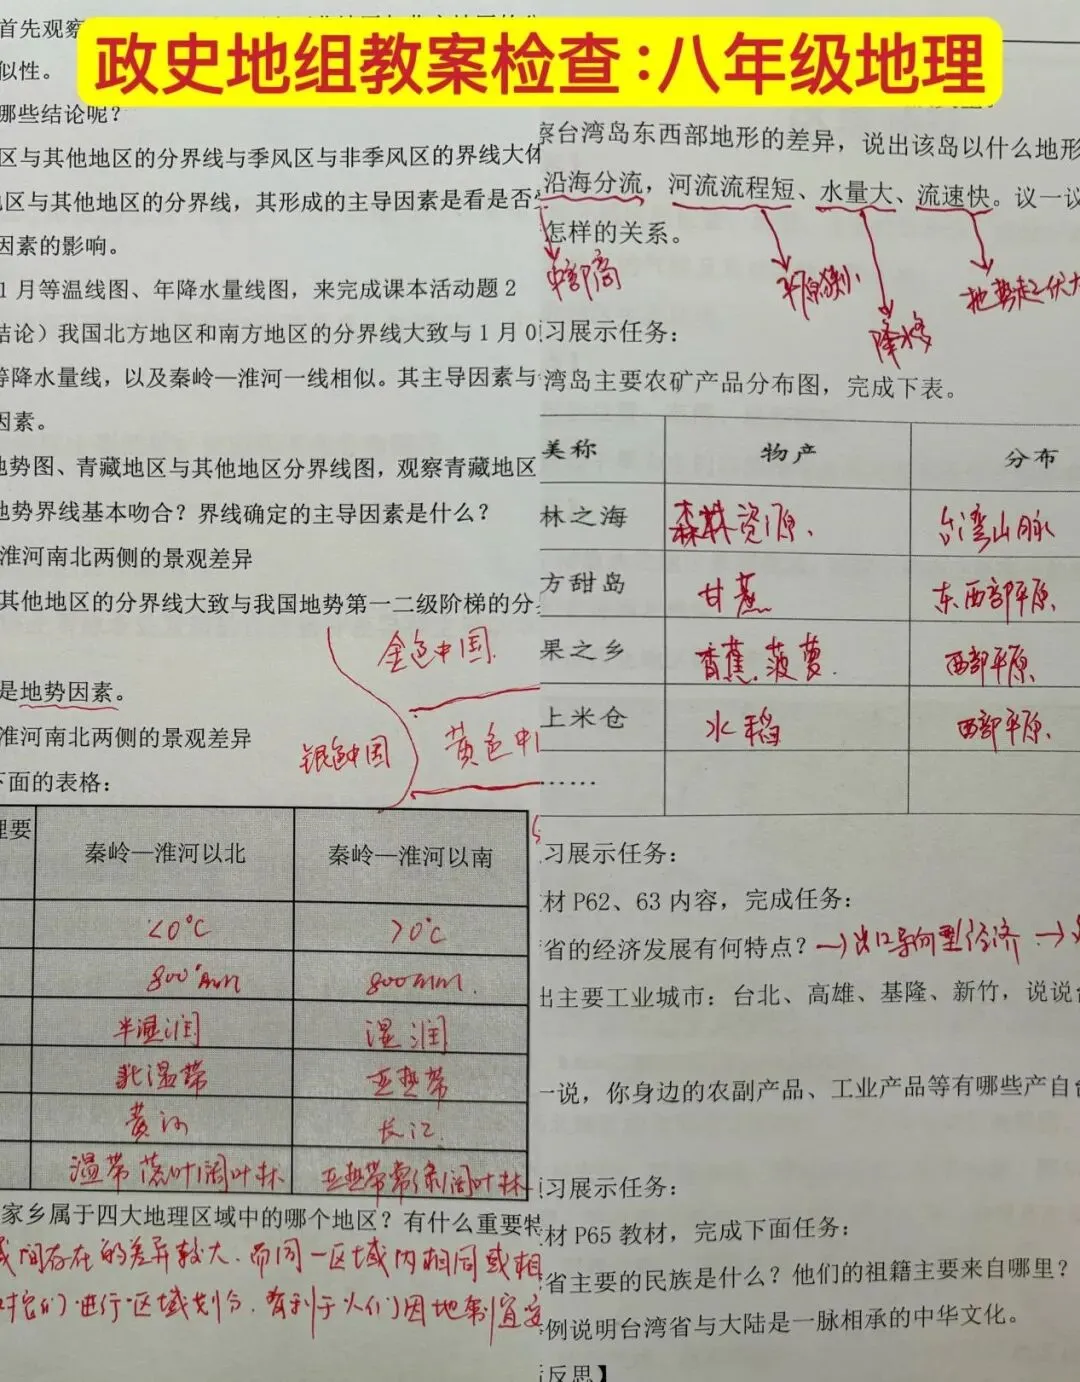 政史地组教案检查:八年级地理
首先观察
似性。
哪些结论呢?
区与其他地区的分界线与季风区与非季风区的界线大体
区与其他地区的分界线,其形成的主导因素是看是否
因素的影响。
1月等温线图、年降水量线图,来完成课本活动题2
结论)我国北方地区和南方地区的分界线大致与1月0
等降水量线,以及秦岭—淮河一线相似。其主导因素与
因素。
地势图、青藏地区与其他地区分界线图,观察青藏地区
地势界线基本吻合?界线确定的主导因素是什么?
淮河南北两侧的景观差异
其他地区的分界线大致与我国地势第一二级阶梯的分
金色中国
是地势因素。
淮河南北两侧的景观差异
银色中国
黄色中
下面的表格:
理要 秦岭—淮河以北 秦岭—淮河以南
<0°C >0°C
800mm 800mm.
半湿润 湿润
北温带 亚热带
黄河 长江
温带落叶阔叶林 亚热带常绿阔叶林
家乡属于四大地理区域中的哪个地区?有什么重要特
域间存在的差异较大.而同一区域内相同或相
对它们进行区域划分.有利于人们因地制宜安
察台湾岛东西部地形的差异,说出该岛以什么地形
沿海分流,河流流程短、水量大、流速快。议一议
怎样的关系。
中部高
平原狭小
降水多
地势起伏大
习展示任务:
湾岛主要农矿产品分布图,完成下表。
美称 物产 分布
林之海 森林资源、 台湾山脉
方甜岛 甘蔗 东西部平原.
果之乡 香蕉.菠萝. 西部平原.
上米仓 水稻 西部平原.
……
习展示任务:
材P62、63内容,完成任务:
省的经济发展有何特点?→出口导向型经济→
出主要工业城市:台北、高雄、基隆、新竹,说说
一说,你身边的农副产品、工业产品等有哪些产自台
习展示任务:
材P65教材,完成下面任务:
省主要的民族是什么?他们的祖籍主要来自哪里?
例说明台湾省与大陆是一脉相承的中华文化。
反思】